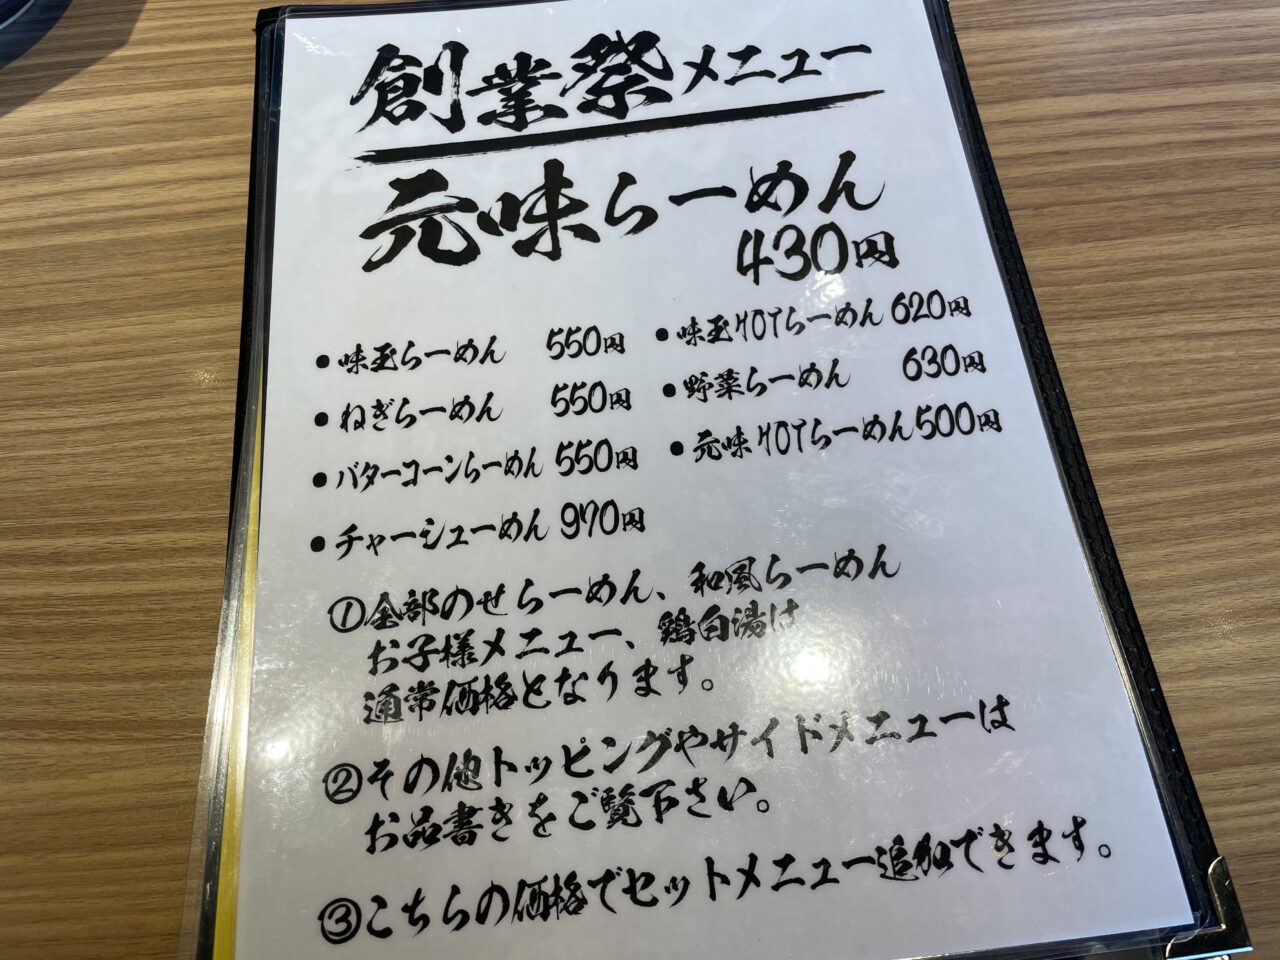 創業祭メニュー
元味らーめん
430円
●味玉らーめん 550円
●ねぎらーめん 550円
●バターコーンらーめん 550円
●チャーシューめん 970円
●味玉HOTらーめん 620円
●野菜らーめん 630円
●元味HOTらーめん 500円
①全部のせらーめん、和風らーめん
お子様メニュー、鶏白湯は
通常価格となります。
②その他トッピングやサイドメニューは
お品書きをご覧下さい。
③こちらの価格でセットメニュー追加できます。